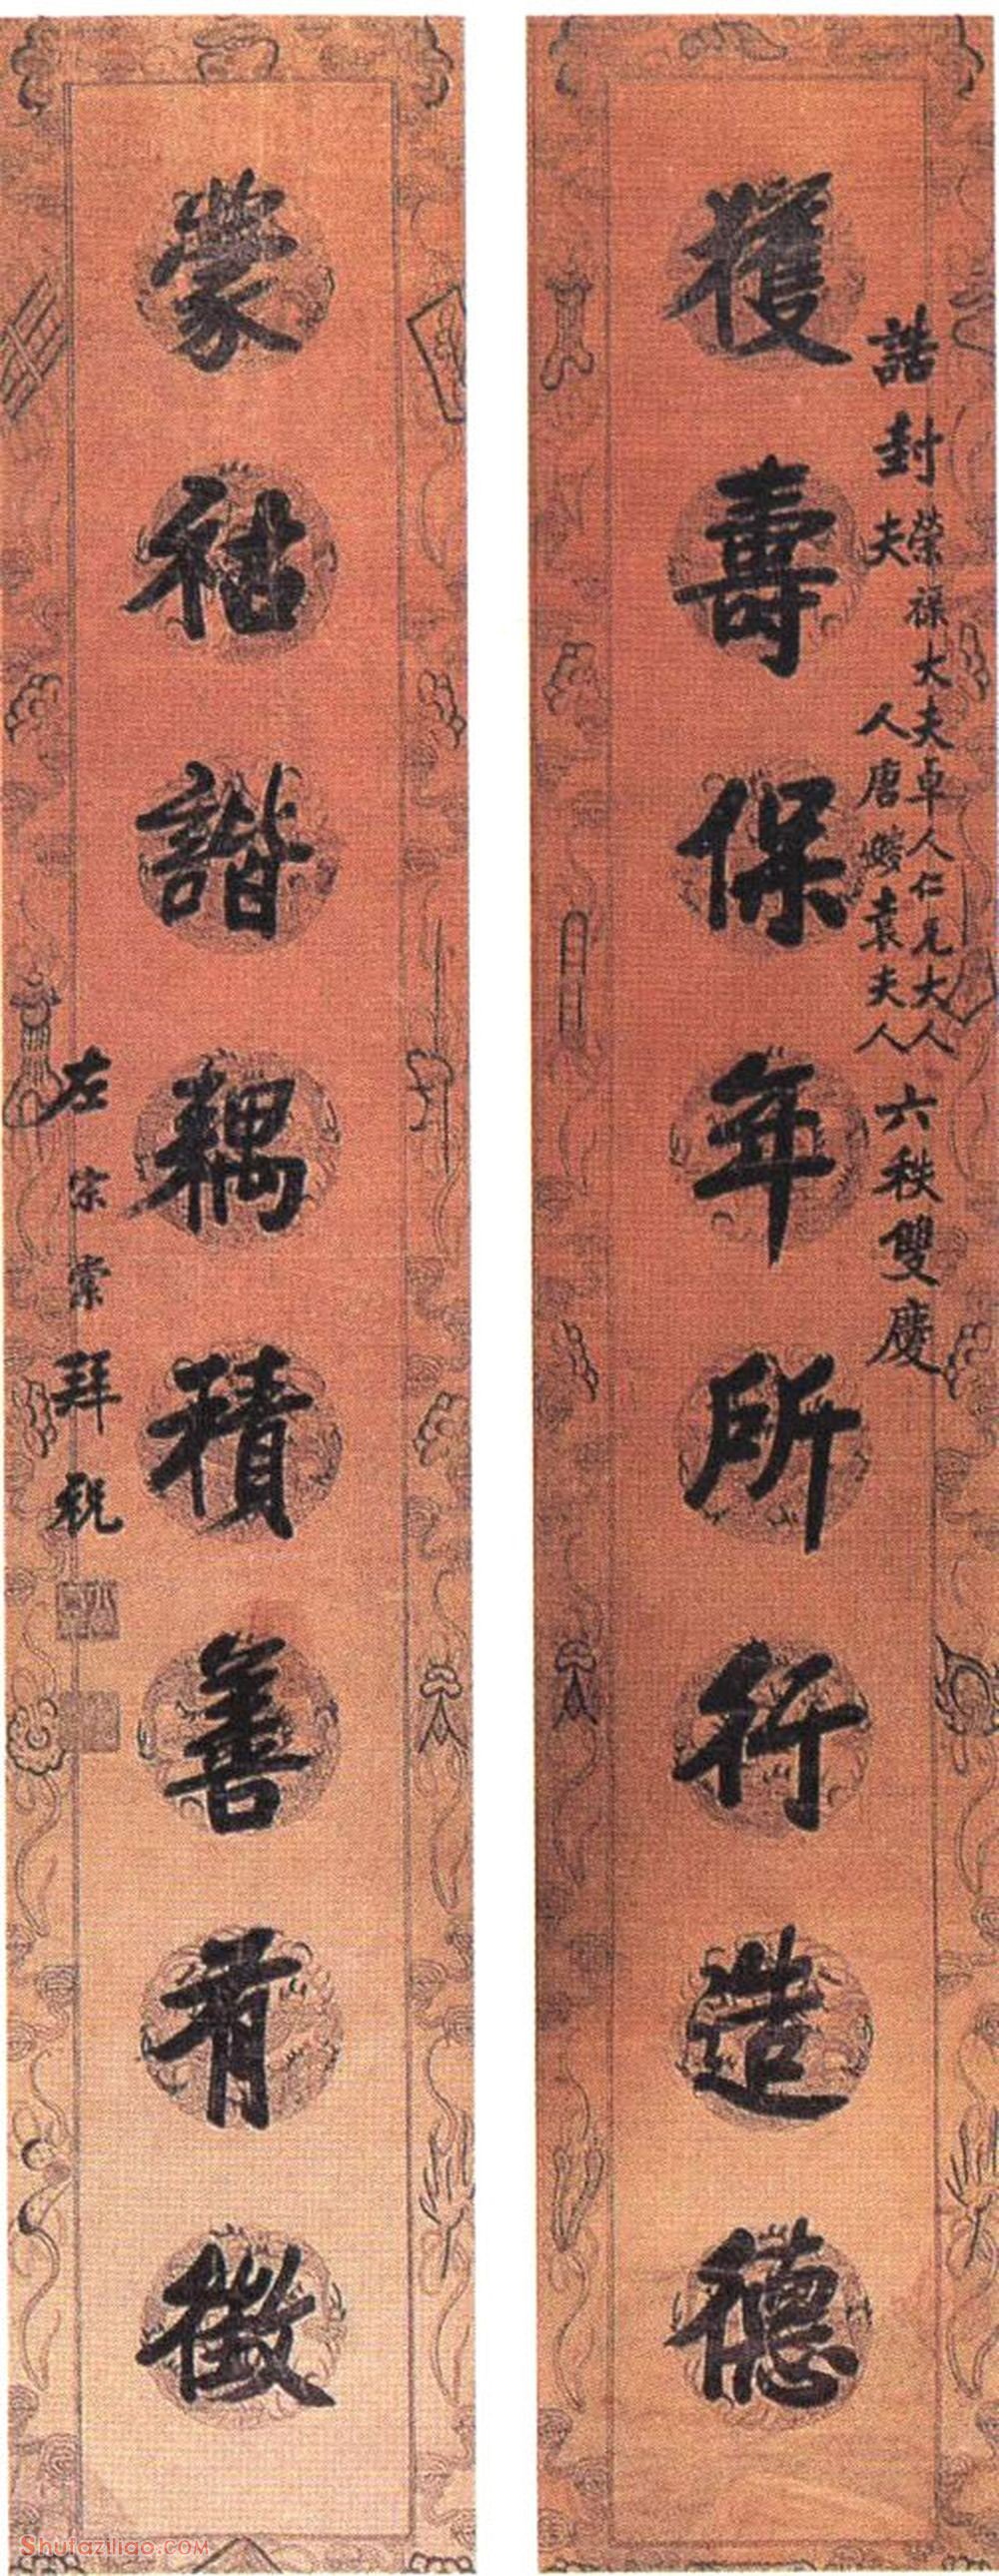 獲壽保年所行造德
誥封榮祿大夫卓人仁兄大人
夫人唐嫂袁夫人
六秩雙慶
蒙祜諧耦積善有徵
左宗棠拜祝
Shufaziliao.COM